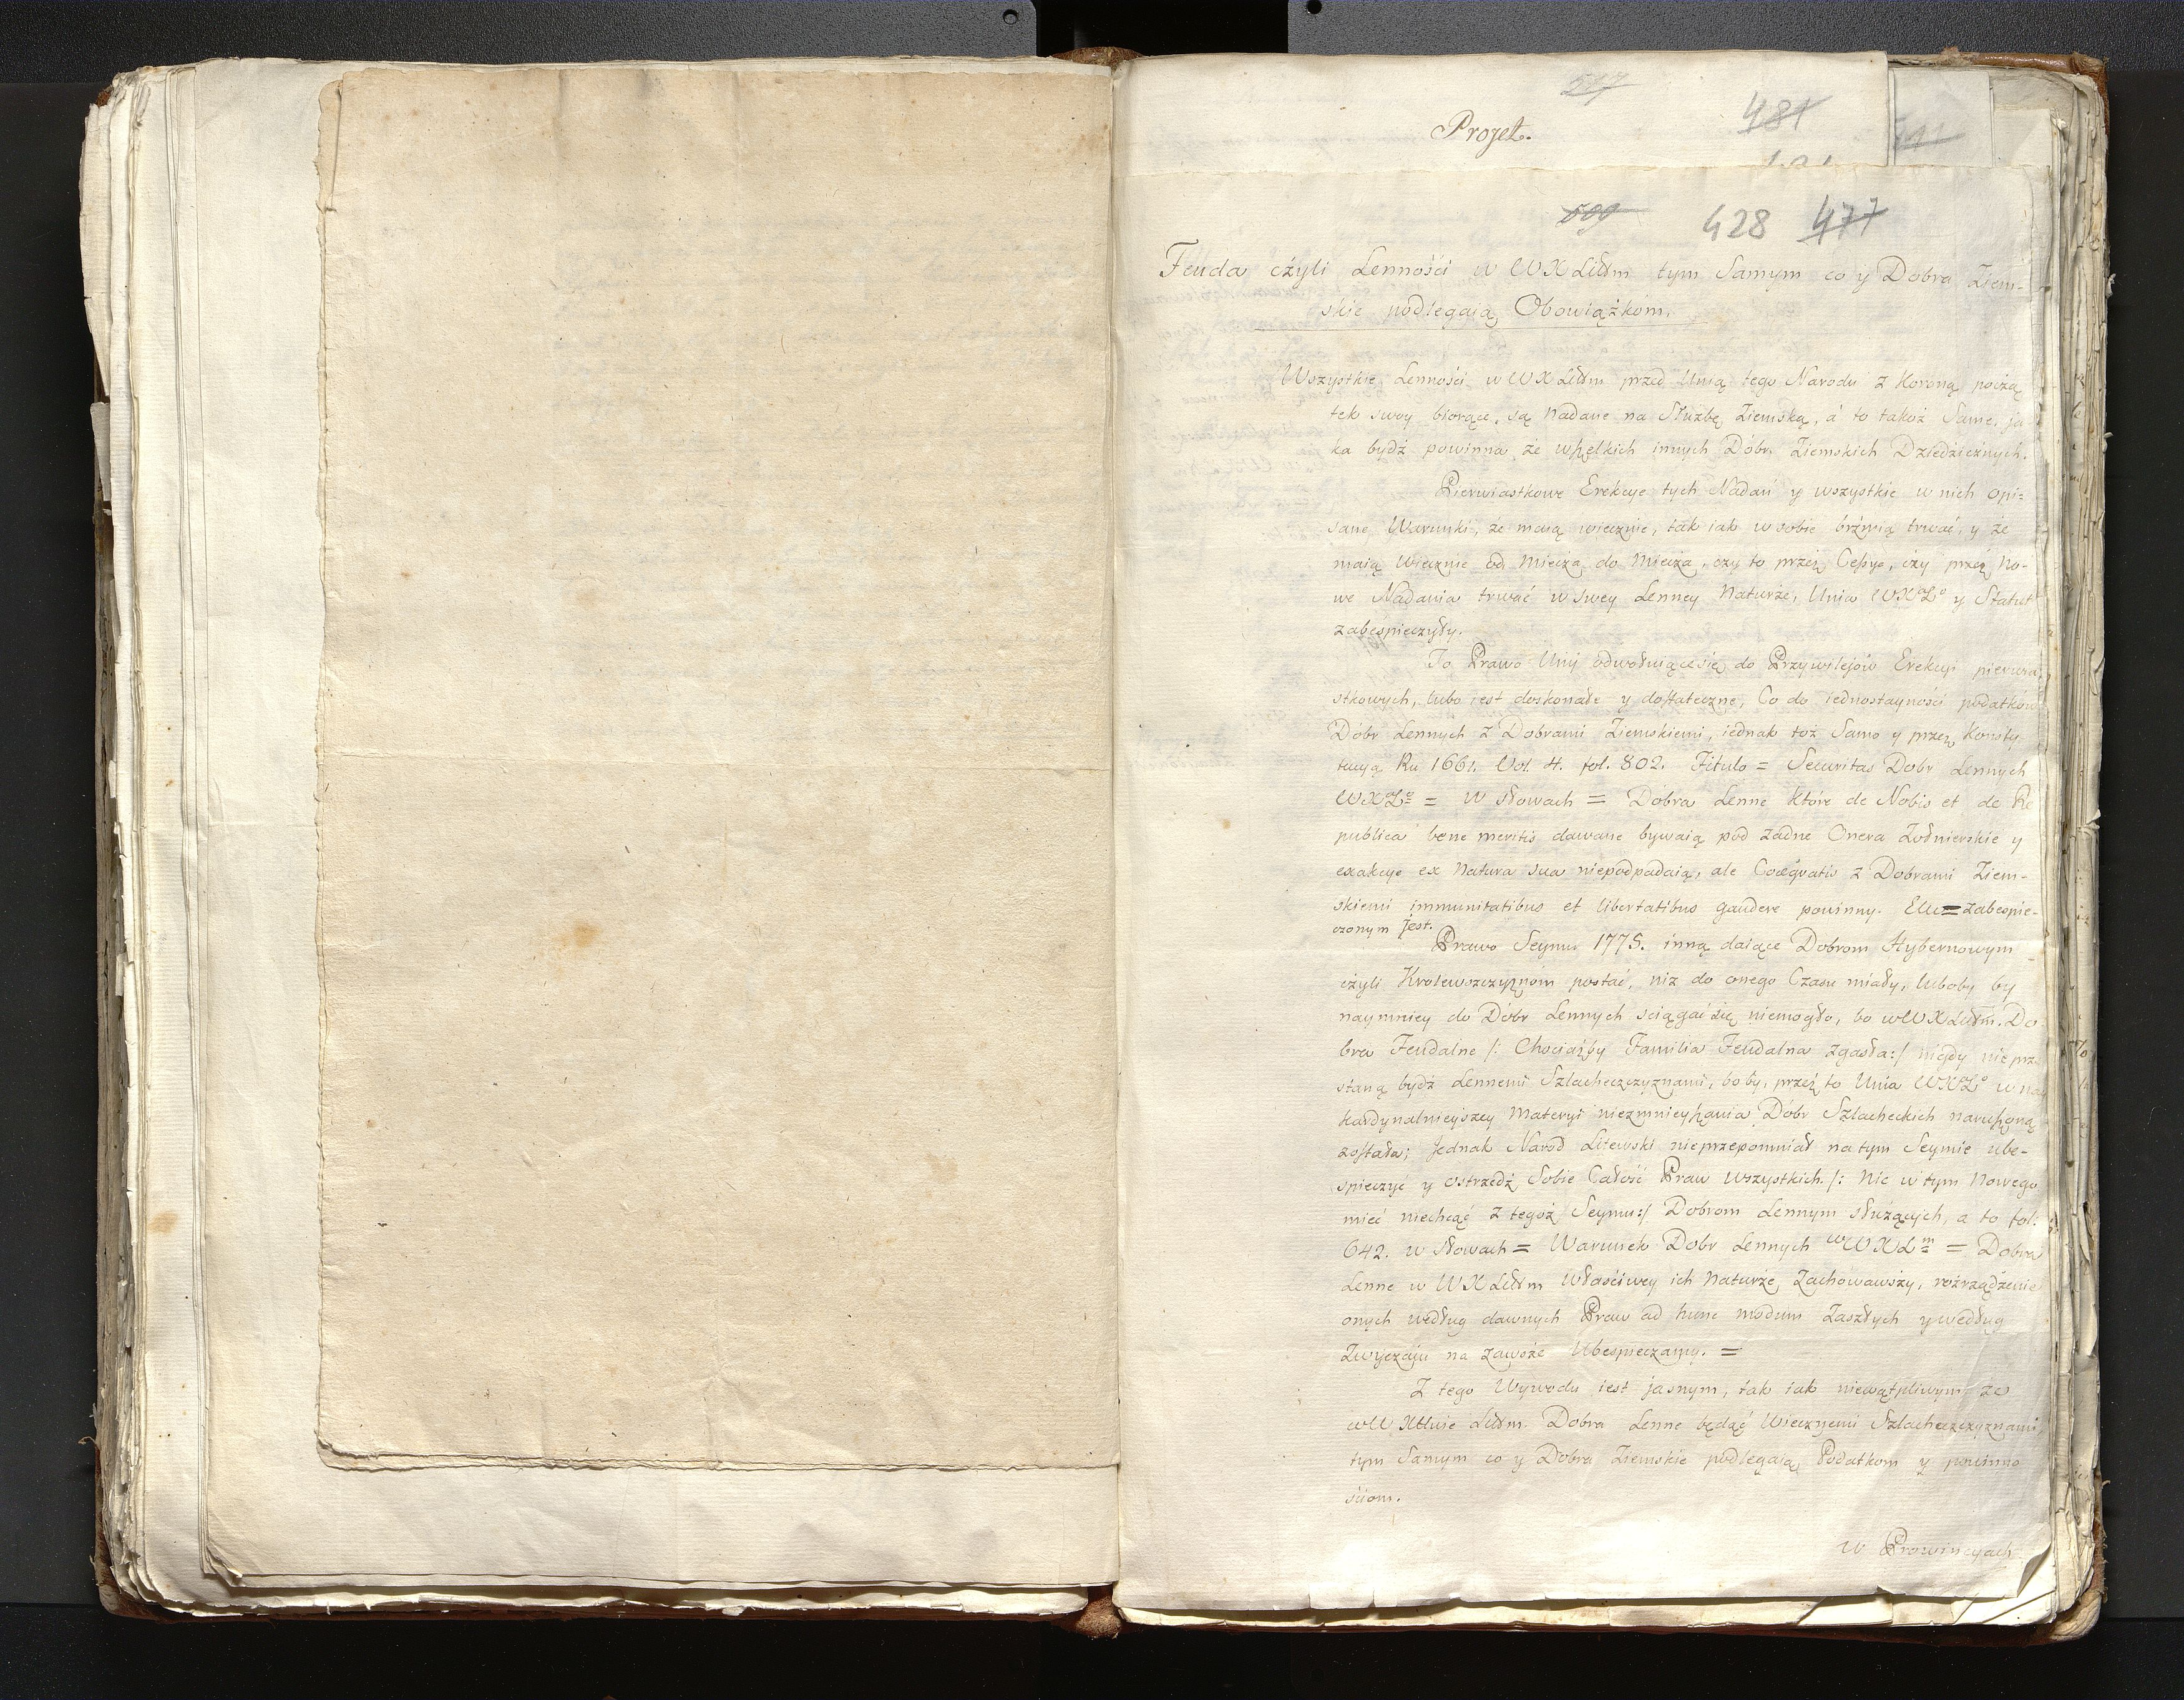 517
Projet.
481
511
509 428 477
Feuda czyli Lenności w WXLittm tym Samym co y Dobra Ziem-
skie podlegaią Obowiązkom.
Wszystkie Lenności w WXLittm przed Unią tego Narodu z Koroną począ
tek swoy biorące, są nadane na Służbę Ziemską, a to takoż Same, ja
ka bydź powinna ze wszelkich innych Dóbr Ziemskich Dziedzicznych.
Pierwiastkowe Erekcye tych Nadań y wszystkie w nich opi=
sane Warunki, że maią wiecznie, tak iak w sobie brzmią trwać, y że
maią Wiecznie od Miecza do Miecza, czy to przez Cessye, czy przez No-
we Nadania trwać w swey Lenney Naturze, Unia WXLo y Statut
zabespieczyły.
To Prawo Unij odwołuiące się do Przywilejów Erekcyi pierwia
stkowych, lubo iest doskonałe y dostateczne, Co do iednostayności podatków
Dóbr Lennych z Dobrami Ziemskiemi, iednak toż Samo y przez Konsty
tucyą Ru 1661. Vol. 4. fol. 802. Titulo = Securitas Dobr Lennych
WXLo = w słowach = Dobra Lenne które de Nobis et de Re
publica bene meritis dawane bywaią pod żadne Onera Żołnierskie y
exakcye ex Natura sua niepodpadaią, ale Coæquatis z Dobrami Ziem-
skiemi immunitatibus et libertatibus gaudere powinny. Etc = zabespie-
czonym jest.
Prawo Seymu 1775. inną daiące Dobrom Hybernowym
czyli Krolewszczyznom postać, niż do onego Czasu miały, luboby by
naymniey do Dóbr Lennych sciągać się niemogło, bo w WXLittm. Do
bra Feudalne /: Chociażby Familia Feudalna zgasła:/ nigdy nieprze
staną bydź Lennemi Szlacheczczyznami, boby przez to Unia WXLo w nay
kardynalnieyszey Materyi niezmnieyszania Dóbr Szlacheckich naruszoną
została; Jednak Naród Litewski nieprzepomniał na tym Seymie ube-
spieczyć y ostrzedz Sobie Całość Praw wszystkich /: Nic w tym Nowego
mieć niechcąc z tegoż Seymu:/ Dobrom Lennym służących, a to fol:
642. w słowach = Warunek Dobr Lennych w WXLm = Dobra
Lenne w WXLittm Właściwey ich Naturze Zachowawszy, rozrządzenie
onych według dawnych Praw ad hunc modum Zaszłych y według
Zwyczaju na zawsze Ubespieczamy. =
Z tego Wywodu iest jasnym, tak iak niewątpliwym że
w W Xttwie Littm. Dobra Lenne będąc Wiecznemi Szlacheczczyznami,
tym Samym co y Dobra Ziemskie podlegaią Podatkom y powinno
ściom.
w Prowincyach